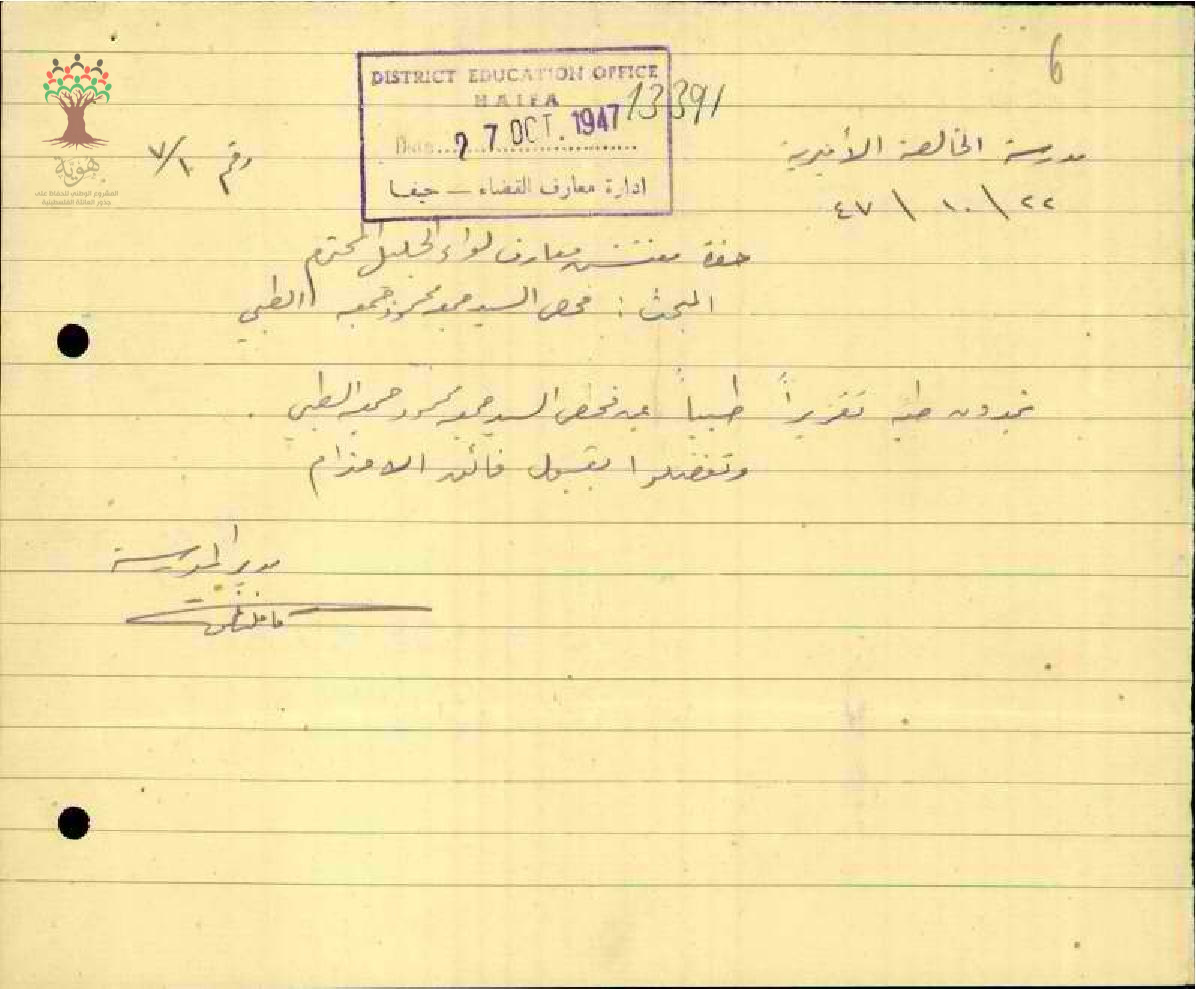 6
DISTRICT EDUCATION OFFICE
HAIFA
13391
Date 27 OCT. 1947
ادارة معارف القضاء — حيفا
هوية
المشروع الوطني للحفاظ على
جذور العائلة الفلسطينية
مدرسة الخالصة الأميرية
رقم ٧/١٠
٢٢ \ ١٠ \ ٤٧
حضرة مفتش معارف لواء الجليل المحترم
المبحث : فحص السيد محمود جمعه الطبي
تجدون طيه تقريراً طبياً عن فحص السيد محمود جمعه الطبي .
وتفضلوا بقبول فائق الاحترام
مدير المدرسة